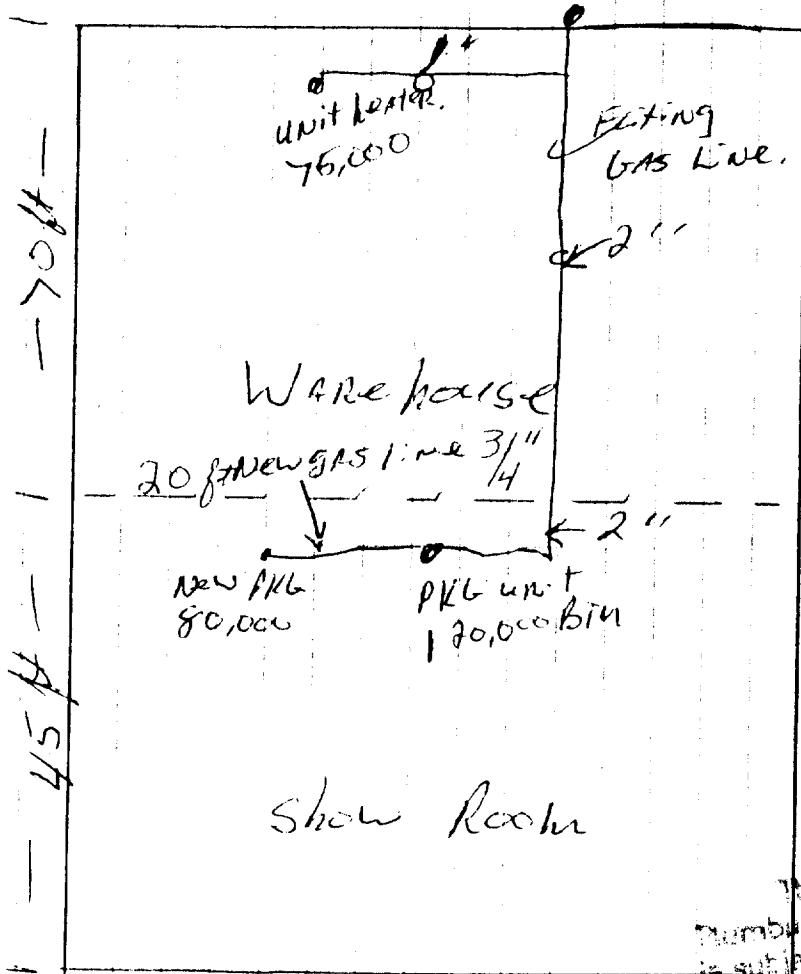 unit heater.
75,000
Exiting
GAS Line.
2"
70ft
WAREhouse
20 ft New gAs line 3/4"
2"
New PKG
80,000
PKG unit
120,000 Btu
45 ft
Show Room